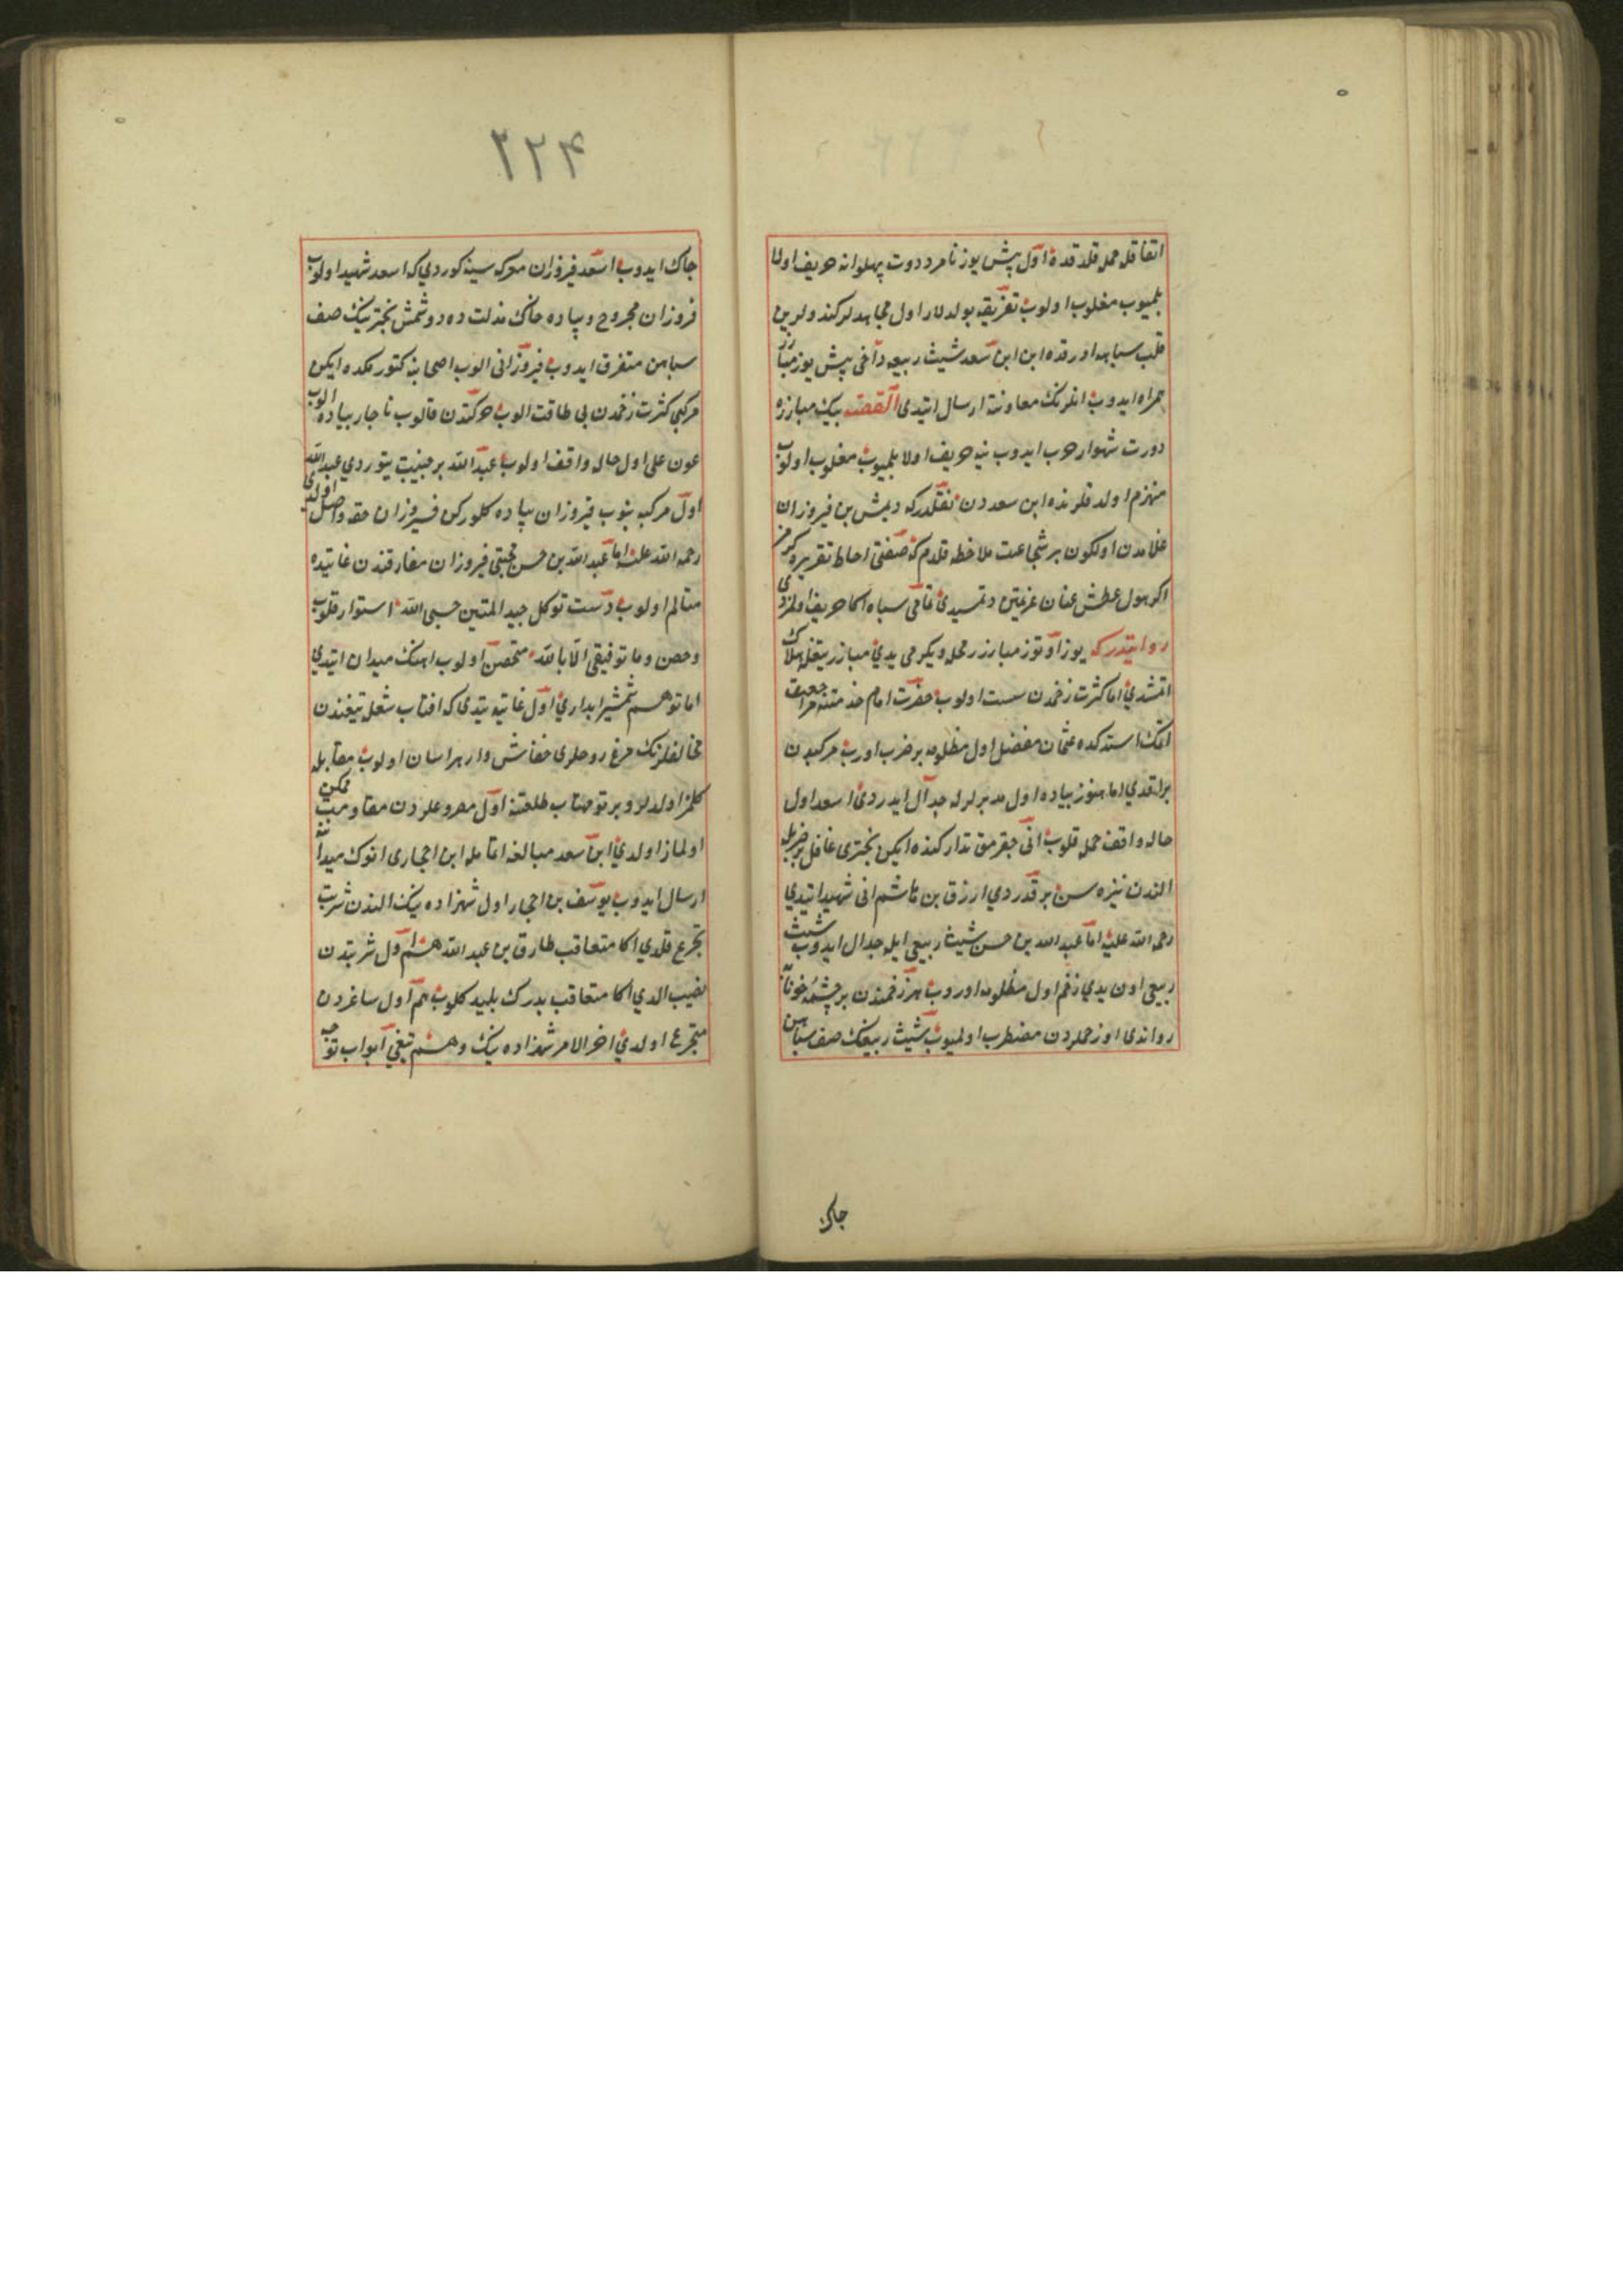 اتفاقله حمله قلدقده اول بش یوز نامرد دورت پهلوانه حریف اولا
بلمیوب مغلوب اولوب تفریقه بولدیلار اول مجاهدلر کندولرین
قلب سپاهه اورقده ابن سعد شیث ربیعه داخی بش یوز مبارز
همراه ایدوب انلرنک معاونتنه ارسال ایتدی القصه بیک مبارزه
دورت شهسوار حرب ایدوب ینه حریف اولا بلمیوب مغلوب اولوب
منهزم اولدقلرنده ابن سعددن نقلدرکه دیمش بن فیروزان
غلامدن اول کون بر شجاعت ملاحظه قلدم که صفتی احاطه تقریره کرمز
اکر هول عطش عنان عزیمتن دتمسیدی قامی سپاه اکا حریف اولمزدی
روایتدرکه یوز اوتوز مبارز رمحله ویکرمی یدی مبارز تیغله هلاک
اتمشدی اما کثرت زخمدن سست اولوب حضرت امام خدمتنه مراجعت
اتمک استدکده عثمان مفضل اول مظلومه بر ضرب اوروب مرکبدن
براقدی اما هنوز پیاده اول مدبرلرله جدال ایدردی اسعد اول
حاله واقف حمله قلوب انی چقرمق تدارکنده ایکن بختری غافل بر ضربله
الندن نیزه سن برقدردی ارزق بن هاشم انی شهید ایتدی
رحمه الله علیه اما عبد الله بن حسن شیث ربیعی ایله جدال ایدوب شیث
ربیعی اون یدی زخم اول مظلومه اوروب هر زخمندن بر چشمه خونابه
رواندی اوزخملردن مضطرب اولمیوب شیث ربیعنک صف سپاهن
چاک
۲۲۴
چاک ایدوب اسعد فیروزان معرکه سینه کوردی که اسعد شهید اولوب
فروزان مجروح وپیاده خاک مذلت ده دوشمش بخترینک صف
سپاهن متفرق ایدوب فیروزانی الوب اصحابنه کتورمکده ایکن
مرکبی کثرت زخمدن بی طاقت الوب حرکتدن قالوب ناچار پیاده الوب
عون علی اول حاله واقف اولوب عبد الله بر جنیبت یتوردی عبد الله
اول مرکبه بنوب فیروزان پیاده کلورکن فیروزان حقه واصل اولدی
رحمه الله علیه اما عبد الله بن حسن مجتبی فیروزان مفارقتندن غایتده
متالم اولوب دست توکل حبل المتین حسبی الله استوار قلوب
وحصن وما توفیقی الا بالله متحصن اولوب اهنک میدان ایتدی
اما توهم شمشیر ابداری اول غایته یتدی که افتاب شعله تیغندن
مخالفلرنک مرغ روحلری خفاش وار هراسان اولوب مقابله
کلمز اولدیلر و پرتو مهتاب طلعتنه اول مصروعلردن مقاومت ممکن
اولماز اولدی ابن سعد مبالغه اتامله ابن احجاری انوک میداننه
ارسال ایدوب یوسف بن احجار اول شهزاده نیک الندن شربت
تجرع قلدی اکا متعاقب طارق بن عبد الله هم اول شربتدن
نصیب الدی اکا متعاقب بدرک بلید کلوب هم اول ساغردن
متجرع اولدی اخر الامر شهزاده نیک وهم تیغی ابواب توجه